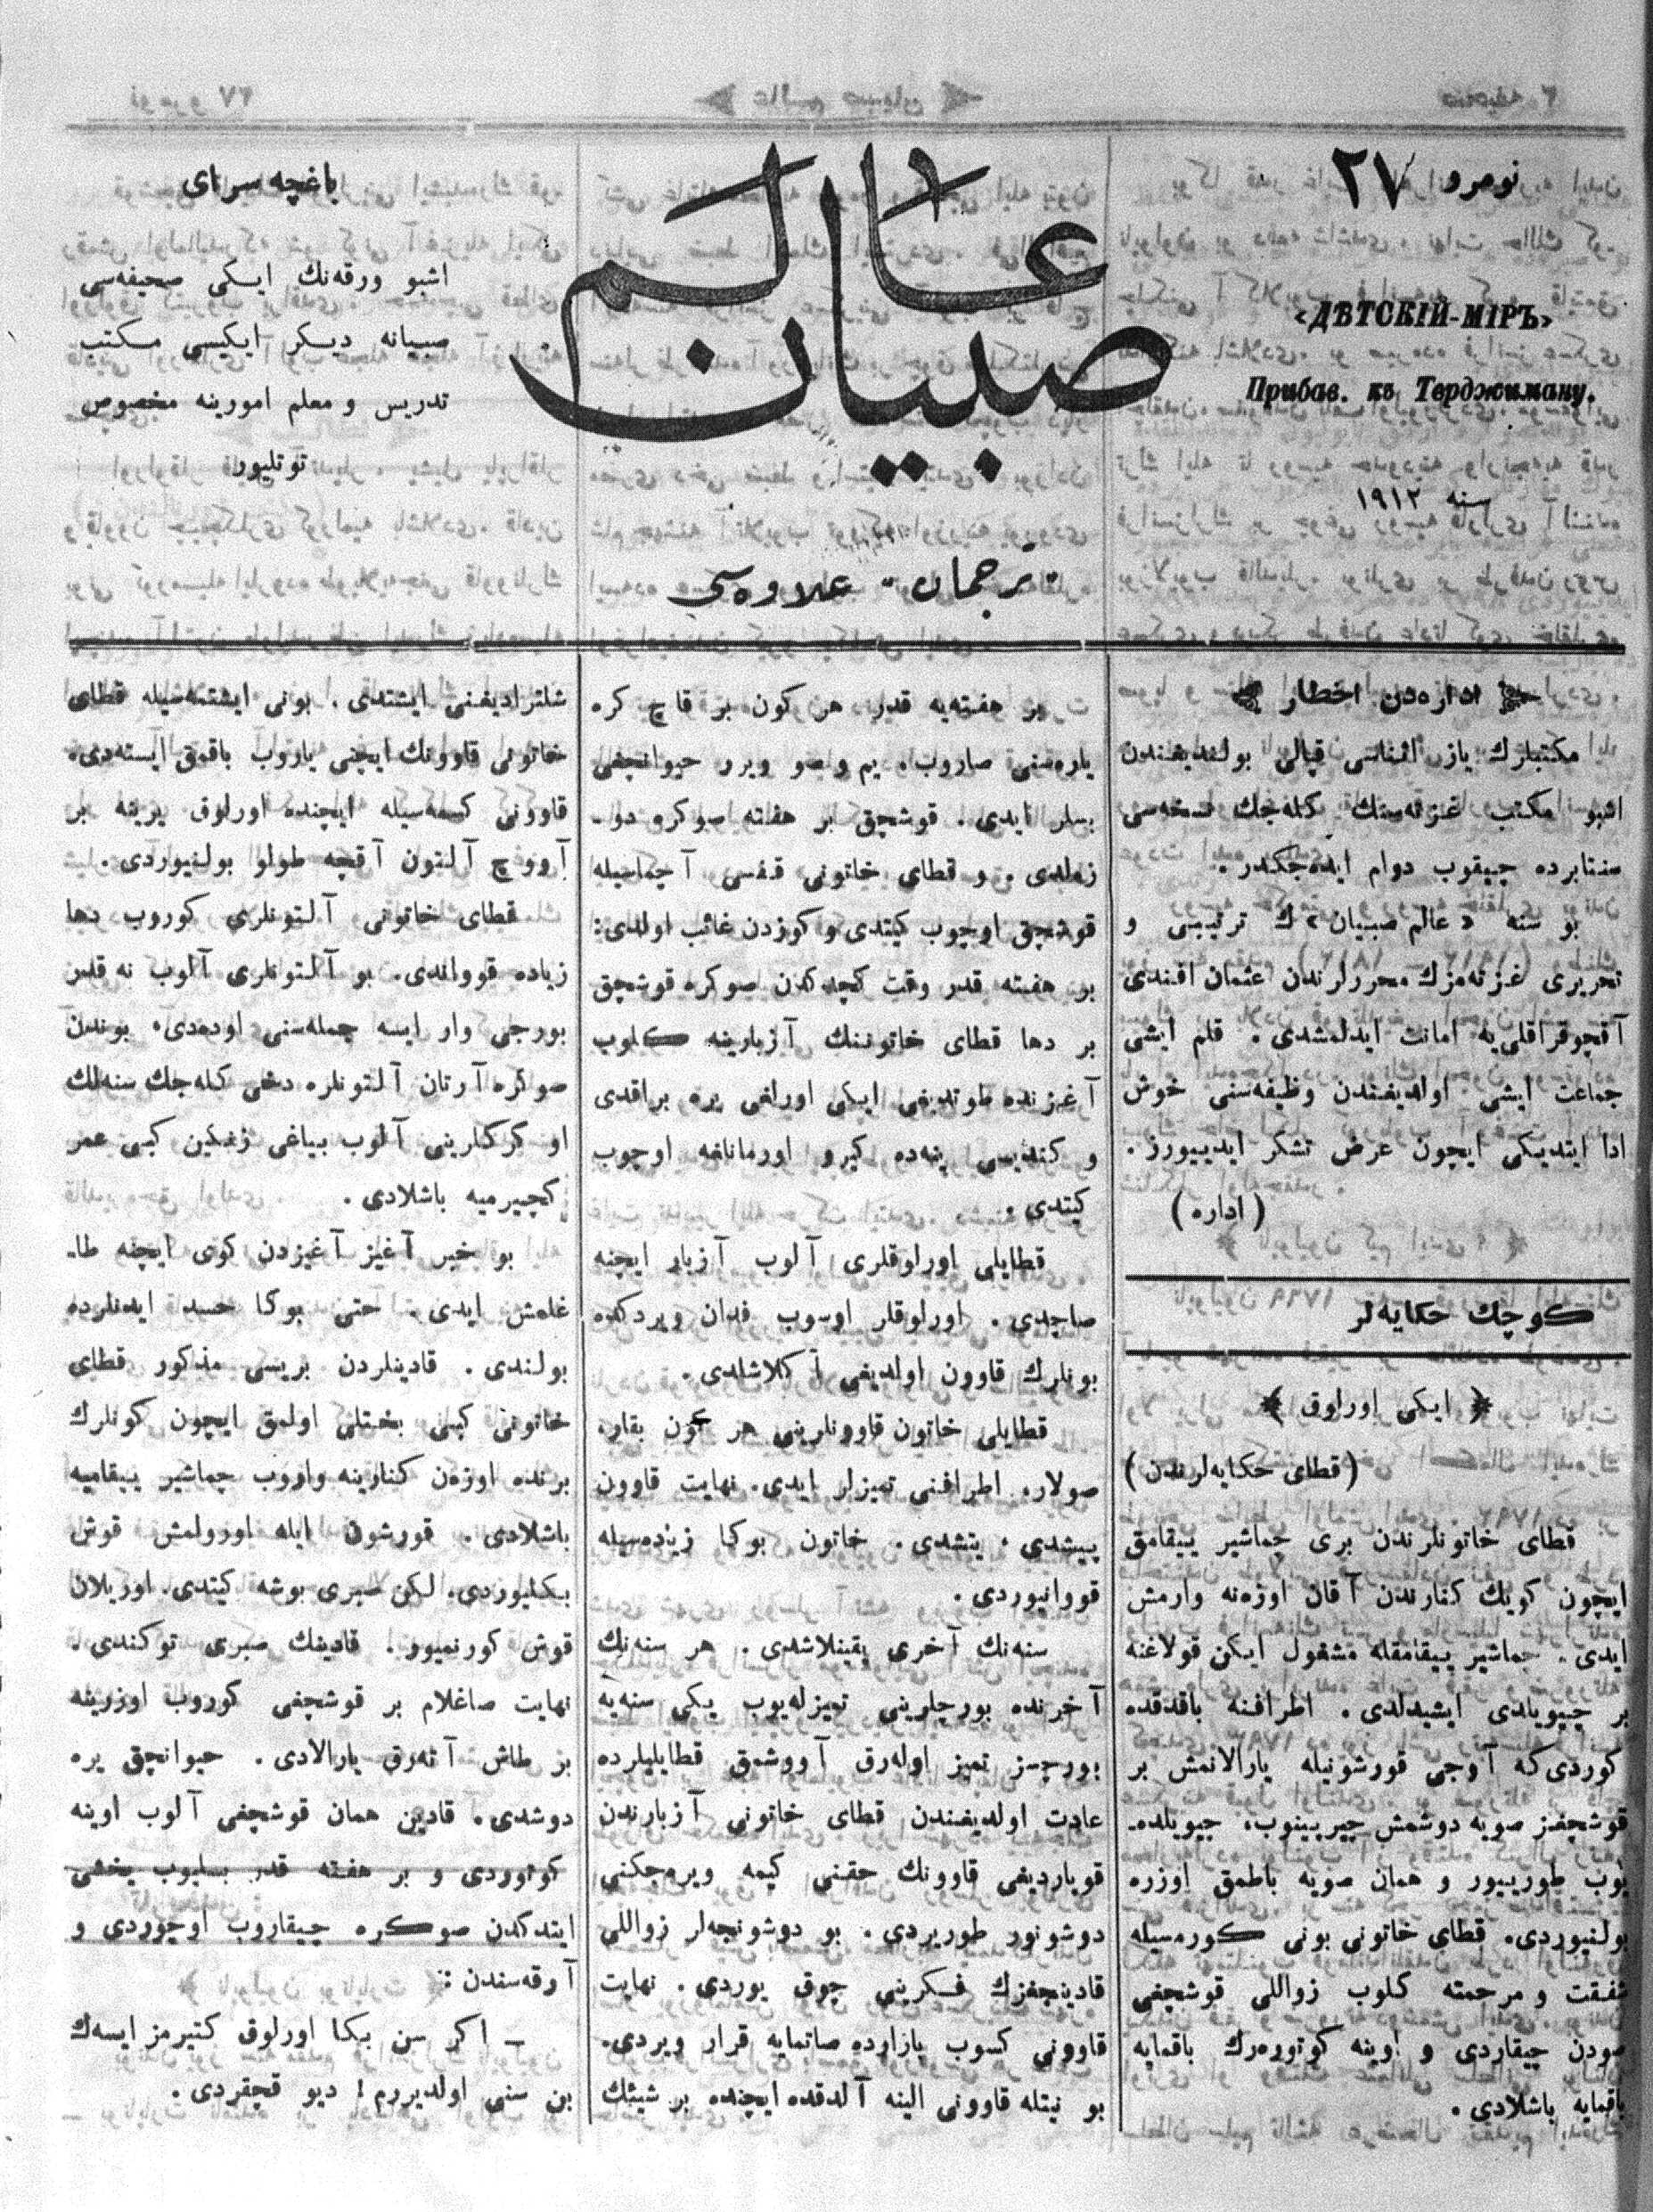 نومرو ٢٧
«ДѢТСКІЙ-МІРЪ»
Прибав. къ Терджиману.
سنه ١٩١٢
عالم
صبیان
„ترجمان“ علاوه‌سی
باغچه سرای
اشبو ورقه‌نك ایكی صحیفه‌سی
صبیانه دیكر ایكیسی مكتب
تدریس و معلم امورینه مخصوص
توتلیور
اداره‌دن اخطار
مكتبلرك یاز اثناسی قپالی بولندیغندن
اشبو مكتب غزته‌سنك كله‌جك نسخه‌سی
سنتابرده چیقوب دوام ایده‌جكدر.
بو سنه «عالم صبیان» ك ترتیبی و
تحریری غزته‌مزك محررلرندن عثمان افندی
آقچوقراقلی‌یه امانت ایدلمشدی. قلم ایشی
جماعت ایشی اولدیغندن وظیفه‌سنی خوش
ادا ایتدیكی ایچون عرض تشكر ایدییورز.
(اداره)
كوچك حكایه‌لر
﴿ ایكی اورلوق ﴾
(قطای حكایه‌لرندن)
قطای خاتونلرندن بری چماشیر ییقامق
ایچون كویك كنارندن آقان اوزه‌نه وارمش
ایدی. چماشیر ییقامقله مشغول ایكن قولاغنه
بر چیویلدی ایشیدلدی. اطرافنه باقدقده
كوردی‌كه آوجی قورشونیله یارالانمش بر
قوشچغز صویه دوشمش چیرپینوب، چیویلده‌-
یوب طورییور و همان صویه باطمق اوزره
بولنیوردی. قطای خاتونی بونی كورمسیله
شفقت و مرحمته كلوب زواللی قوشچغی
صودن چیقاردی و اوینه كوتوره‌رك باقمایه
باقمایه باشلادی.
بر هفته‌یه قدر هر كون بر قاچ كره
یاره‌سنی صاروب، یم و صو ویرر حیوانجغی
بسلر ایدی. قوشچق بر هفته صوكره دو-
زه‌لدی. و قطای خاتونی قفسی آچماسیله
قوشچق اوچوب كیتدی و كوزدن غائب اولدی:
بر هفته قدر وقت كچدكدن صوكره قوشچق
بر دها قطای خاتوننك آزبارینه كلوب
آغزنده طوتدیغی ایكی اورلغی یره براقدی
و كندیسی ینه‌ده كیرو اورمانلغه اوچوب
كیتدی.
قطایلی اورلوقلری آلوب آزبار ایچنه
صاچدی. اورلوقلر اوسوب فدان ویردكده
بونلرك قاوون اولدیغی آكلاشلدی.
قطایلی خاتون قاوونلرینی هر كون بقار،
صولار، اطرافنی تمیزلر ایدی. نهایت قاوون
پیشدی، یتشدی. خاتون بوكا زیاده‌سیله
قووانیوردی.
سنه‌نك آخری یقینلاشدی. هر سنه‌نك
آخرنده بورچلرینی تمیزله‌یوب یكی سنه‌یه
بورچسز تمیز اوله‌رق آووشمق قطایلیلرده
عادت اولدیغندن قطای خاتونی آزبارندن
قوپاردیغی قاوونك حقنی كیمه ویره‌جكنی
دوشونور طوریردی. بو دوشونجه‌لر زواللی
قادینجغزك فكرینی چوق یوردی. نهایت
قاوونی كسوب پازارده صاتمایه قرار ویردی.
بو نیتله قاوونی الینه آلدقده ایچنده بر شیئك
شلتزادیغنی ایشتدی. بونی ایشتمه‌سیله قطای
خاتونی قاوونك ایچنی یاروب باقمق ایسته‌دی.
قاوونی كسمه‌سیله ایچنده اورلوق یرینه بر
آووچ آلتون آقچه طولو بولنیوردی.
قطای خاتونی آلتونلری كوروب دها
زیاده قوواندی. بو آلتونلری آلوب نه قدر
بورجی وار ایسه جمله‌سنی اوده‌دی، بوندن
صوكره آرتان آلتونلره دخی كله‌جك سنه‌لك
او كركلرینی آلوب بیاغی زنكین كبی عمر
كچیرمیه باشلادی.
بو خبر آغیز آغیزدن كوی ایچنه طا-
غلمش ایدی. حتی بوكا حسد ایدنلرده
بولندی. قادینلردن بریسی مذكور قطای
خاتونی كبی بختلی اولمق ایچون كونلرك
برنده اوزه‌ن كنارینه واروب چماشیر ییقامیه
باشلادی. قورشون ایله اورولمش قوش
بكلیوردی. لكن صبری بوشه كیتدی. اوریلان
قوش كورنمیور. قادینك صبری توكندی.
نهایت صاغلام بر قوشچغی كوروب اوزرینه
بر طاش آته‌رق یارالادی. حیوانجق یره
دوشدی. قادین همان قوشچغی آلوب اوینه
كوتوردی و بر هفته قدر بسلیوب یخشی
ایتدكدن صوكره چیقاروب اوچوردی و
آرقه‌سندن:
— اكر سن بكا اورلوق كتیرمز ایسه‌ك
بن سنی اولدیررم! دیو قچقردی.